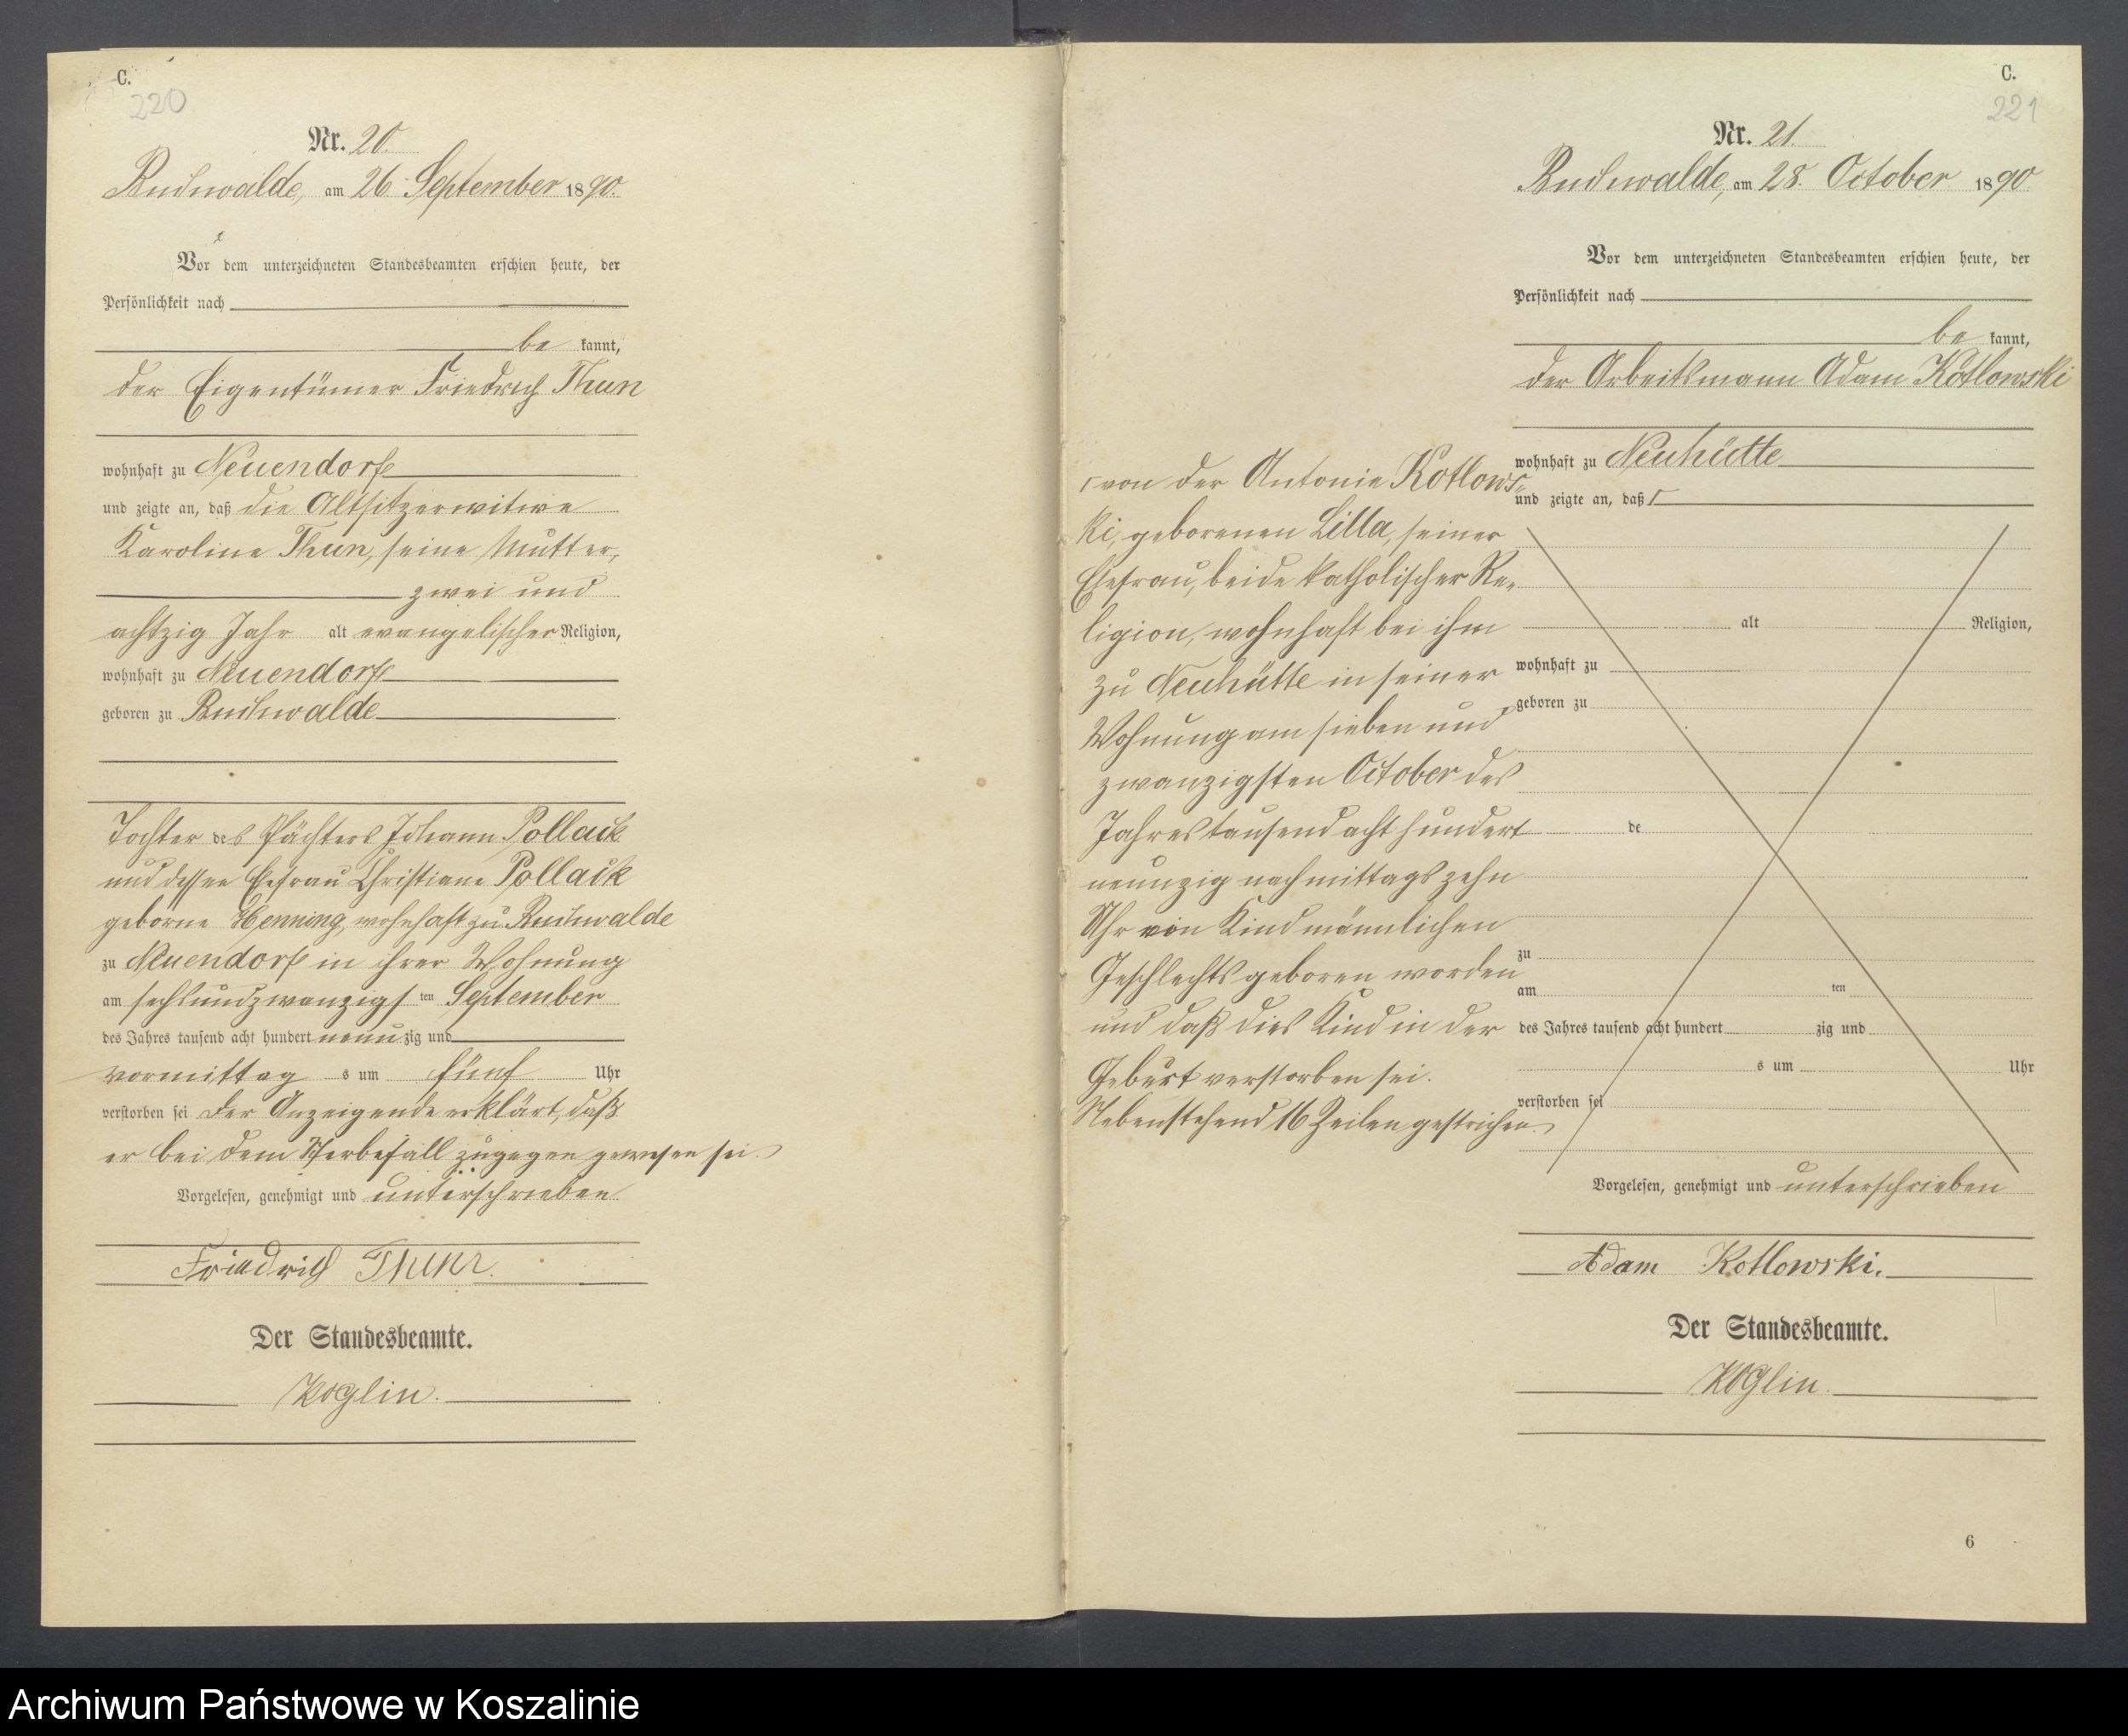 C.
220
Nr. 20.
Buchwalde, am 26. September 1890.
Vor dem unterzeichneten Standesbeamten erschien heute, der
Persönlichkeit nach
be kannt,
der Eigentümer Friedrich Thun
wohnhaft zu Neuendorf
und zeigte an, daß die Altsitzerwitwe
Karoline Thun, seine Mutter,
zwei und
achtzig Jahr alt evangelischer Religion,
wohnhaft zu Neuendorf
geboren zu Buchwalde
Tochter des Pächters Johann Pollack
und dessen Ehefrau Christiane Pollack
geborne Henning, wohnhaft zu Buchwalde
zu Neuendorf in ihrer Wohnung
am sechsundzwanzigsten September
des Jahres tausend acht hundert neunzig und
vormittags um fünf Uhr
verstorben sei Der Anzeigende erklärt, daß
er bei dem Sterbefall zugegen gewesen sei.
Vorgelesen, genehmigt und unterschrieben
Friedrich Thun.
Der Standesbeamte.
Koglin.
C.
221
Nr. 21.
Buchwalde, am 28. October 1890
Vor dem unterzeichneten Standesbeamten erschien heute, der
Persönlichkeit nach
be kannt,
der Arbeitsmann Adam Kotlowski
wohnhaft zu Neuhütte
und zeigte an, daß
von der Antonie Kotlows-
ki, geborenen Lilla, seiner
Ehefrau, beide katholischer Re-
ligion, wohnhaft bei ihm
zu Neuhütte in seiner
Wohnung am sieben und
zwanzigsten October des
Jahres tausend acht hundert
neunzig nachmittags zehn
Uhr ein Kind männlichen
Geschlechts geboren worden
und daß dies Kind in der
Geburt verstorben sei.
Nebenstehend 16 Zeilen gestrichen.
alt Religion,
wohnhaft zu
geboren zu
de
zu
am ten
des Jahres tausend acht hundert zig und
s um Uhr
verstorben sei
Vorgelesen, genehmigt und unterschrieben
Adam Kotlowski.
Der Standesbeamte.
Koglin.
6
Archiwum Państwowe w Koszalinie